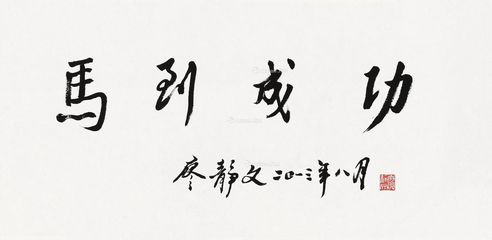 馬到成功
廖靜文二〇一三年八月